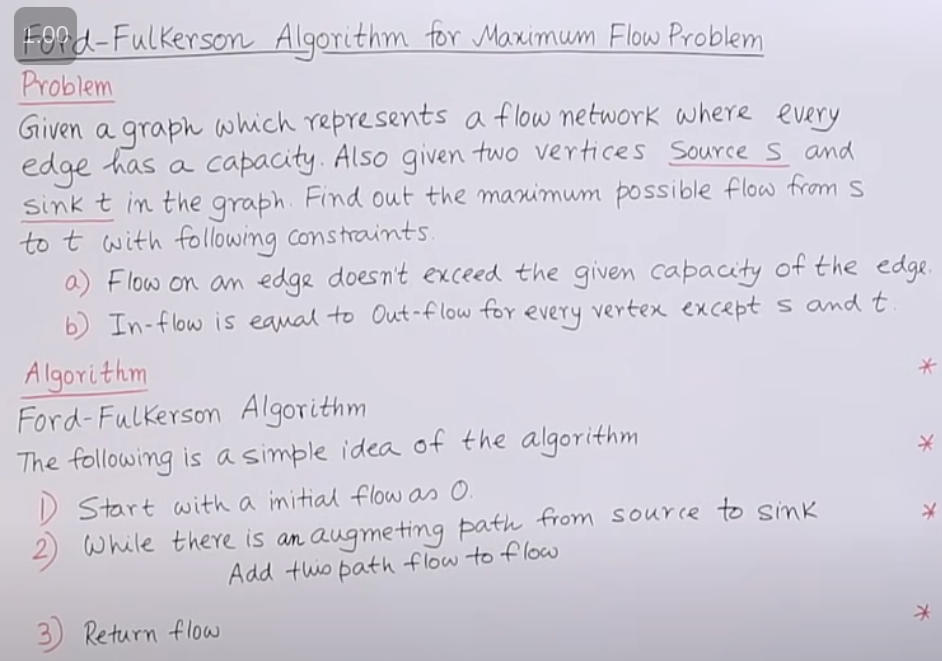 1.00
Ford-Fulkerson Algorithm for Maximum Flow Problem
Problem
Given a graph which represents a flow network where every
edge has a capacity. Also given two vertices Source s and
sink t in the graph. Find out the maximum possible flow from s
to t with following constraints.
a) Flow on an edge doesn't exceed the given capacity of the edge.
b) In-flow is equal to Out-flow for every vertex except s and t.
Algorithm
*
Ford-Fulkerson Algorithm
The following is a simple idea of the algorithm
*
1) Start with a initial flow as 0.
2) While there is an augmeting path from source to sink
*
Add this path flow to flow
*
3) Return flow